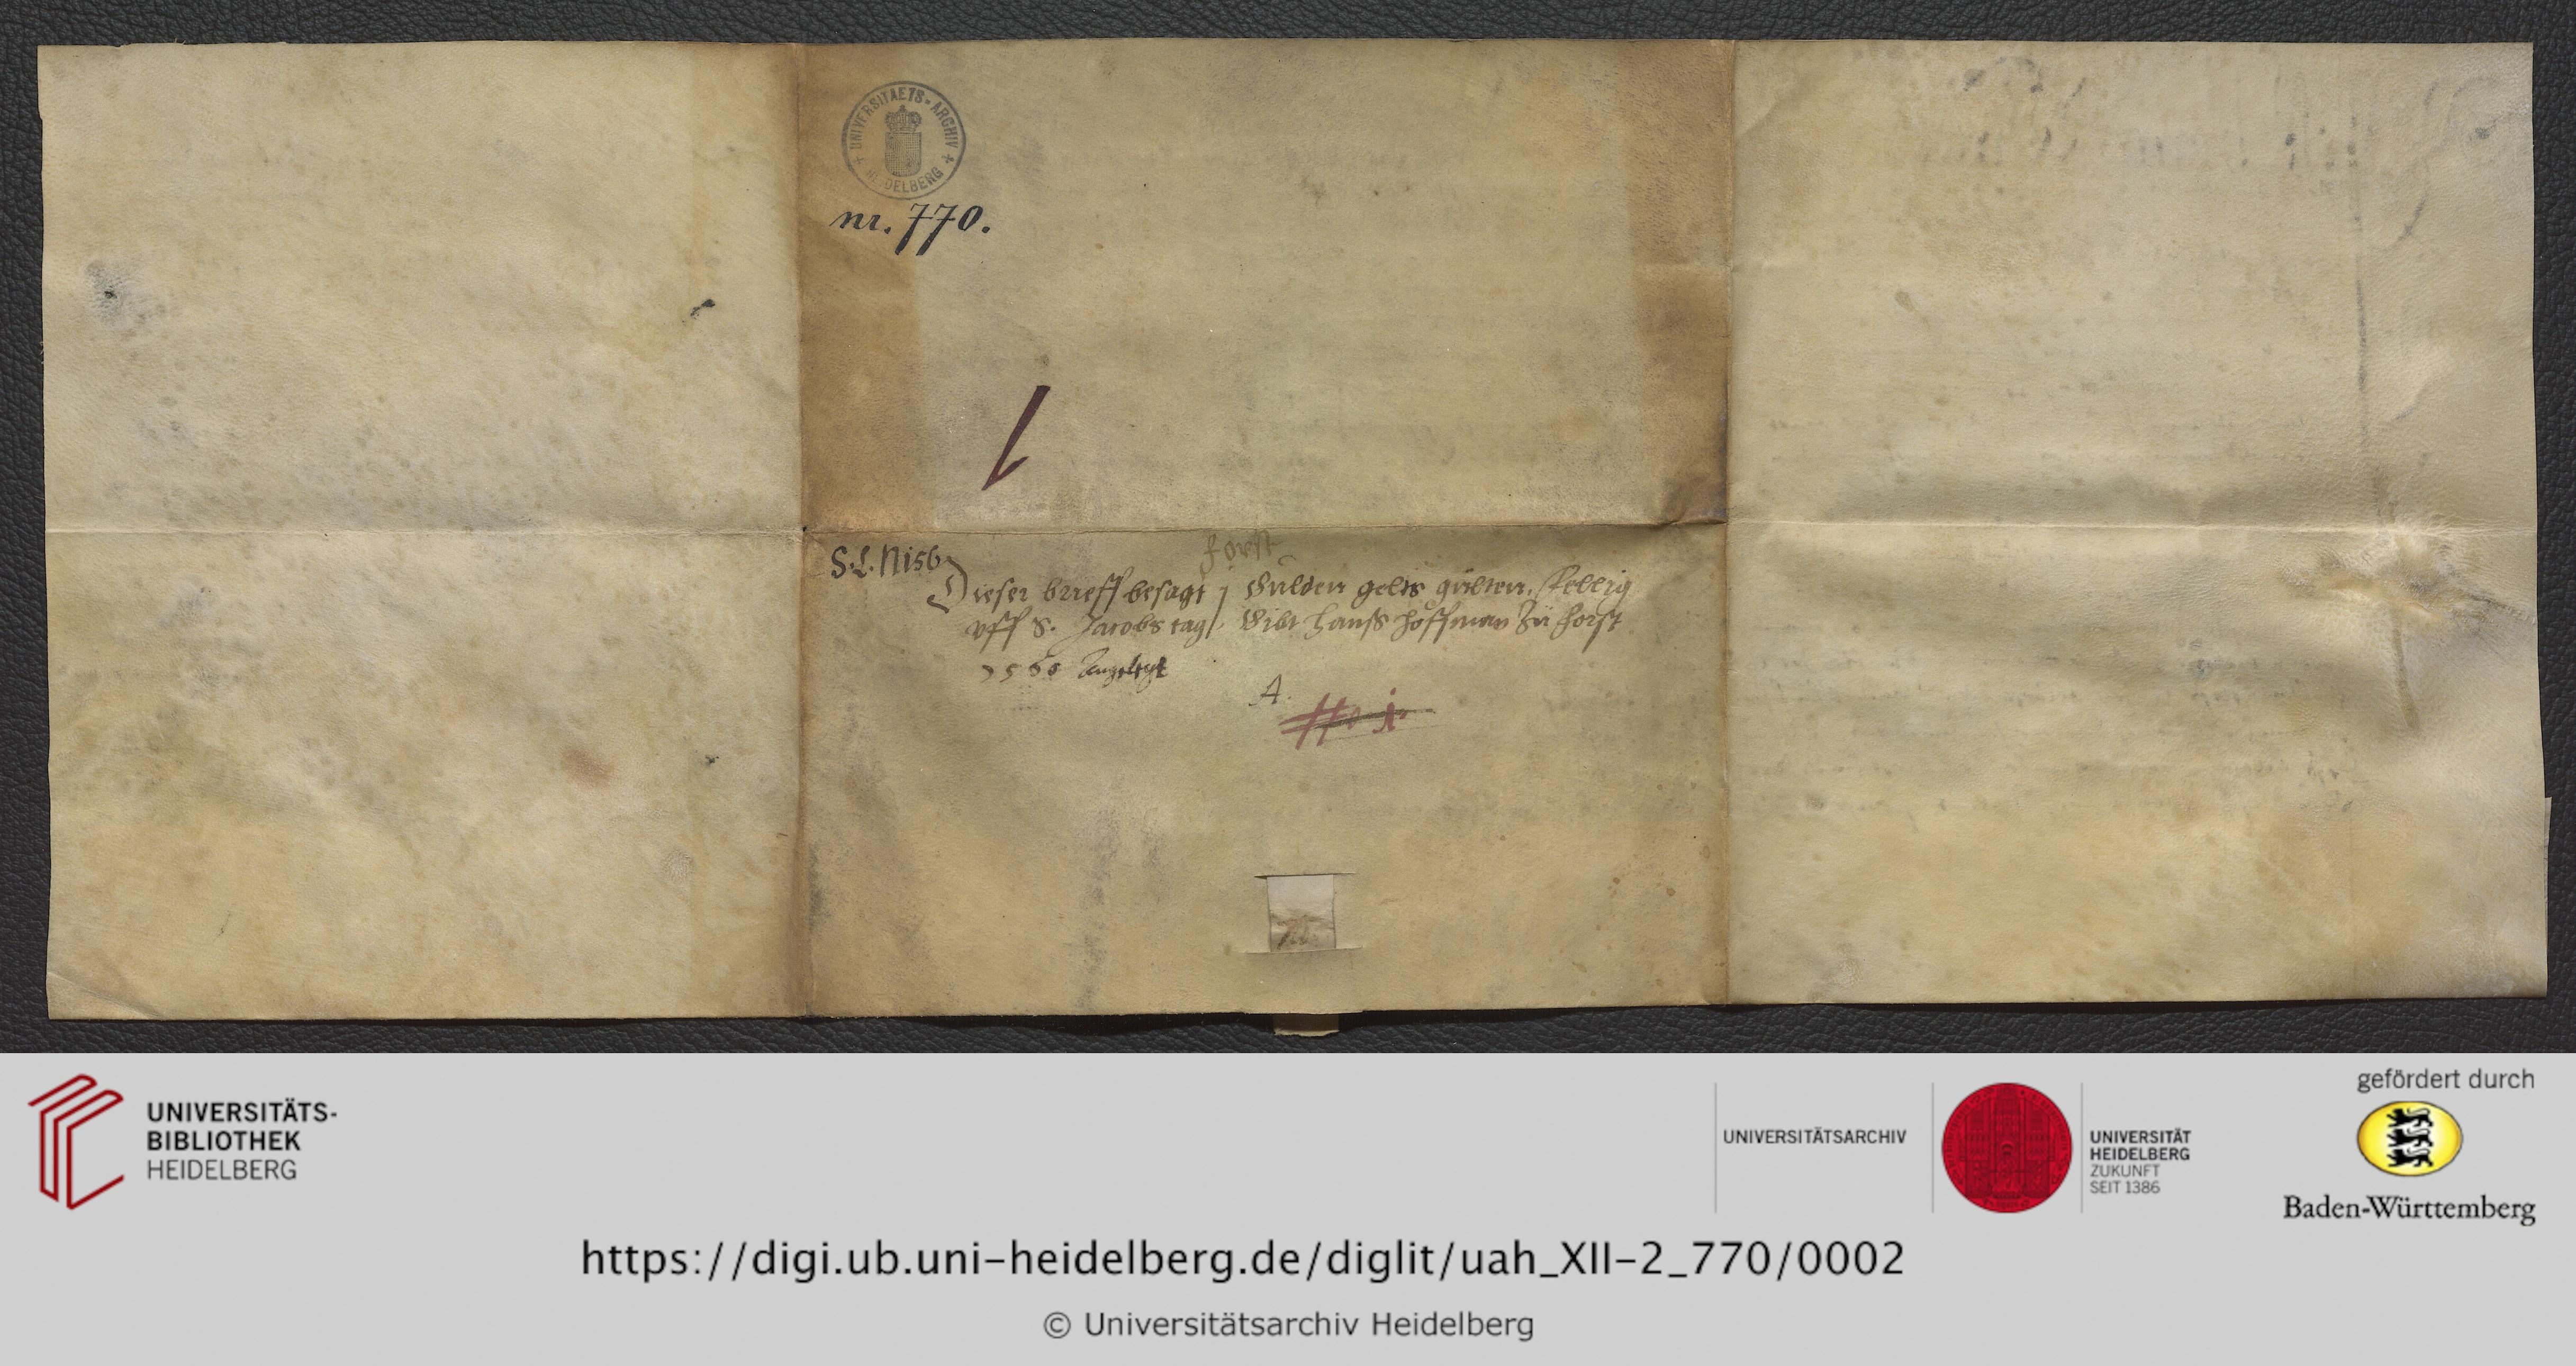 UNIVERSITAETS-ARCHIV
HEIDELBERG
nr. 770.
S.L. N156
forst
Dieser brieff besagt j Gulden gelts gulten, fellig
vff S. Jacobs tag, Gibt Hanß Hoffman zu forst
1560 Angelegt
A.
UNIVERSITÄTS-
BIBLIOTHEK
HEIDELBERG
UNIVERSITÄTSARCHIV
UNIVERSITÄT
HEIDELBERG
ZUKUNFT
SEIT 1386
gefördert durch
Baden-Württemberg
https://digi.ub.uni-heidelberg.de/diglit/uah_XII-2_770/0002
© Universitätsarchiv Heidelberg